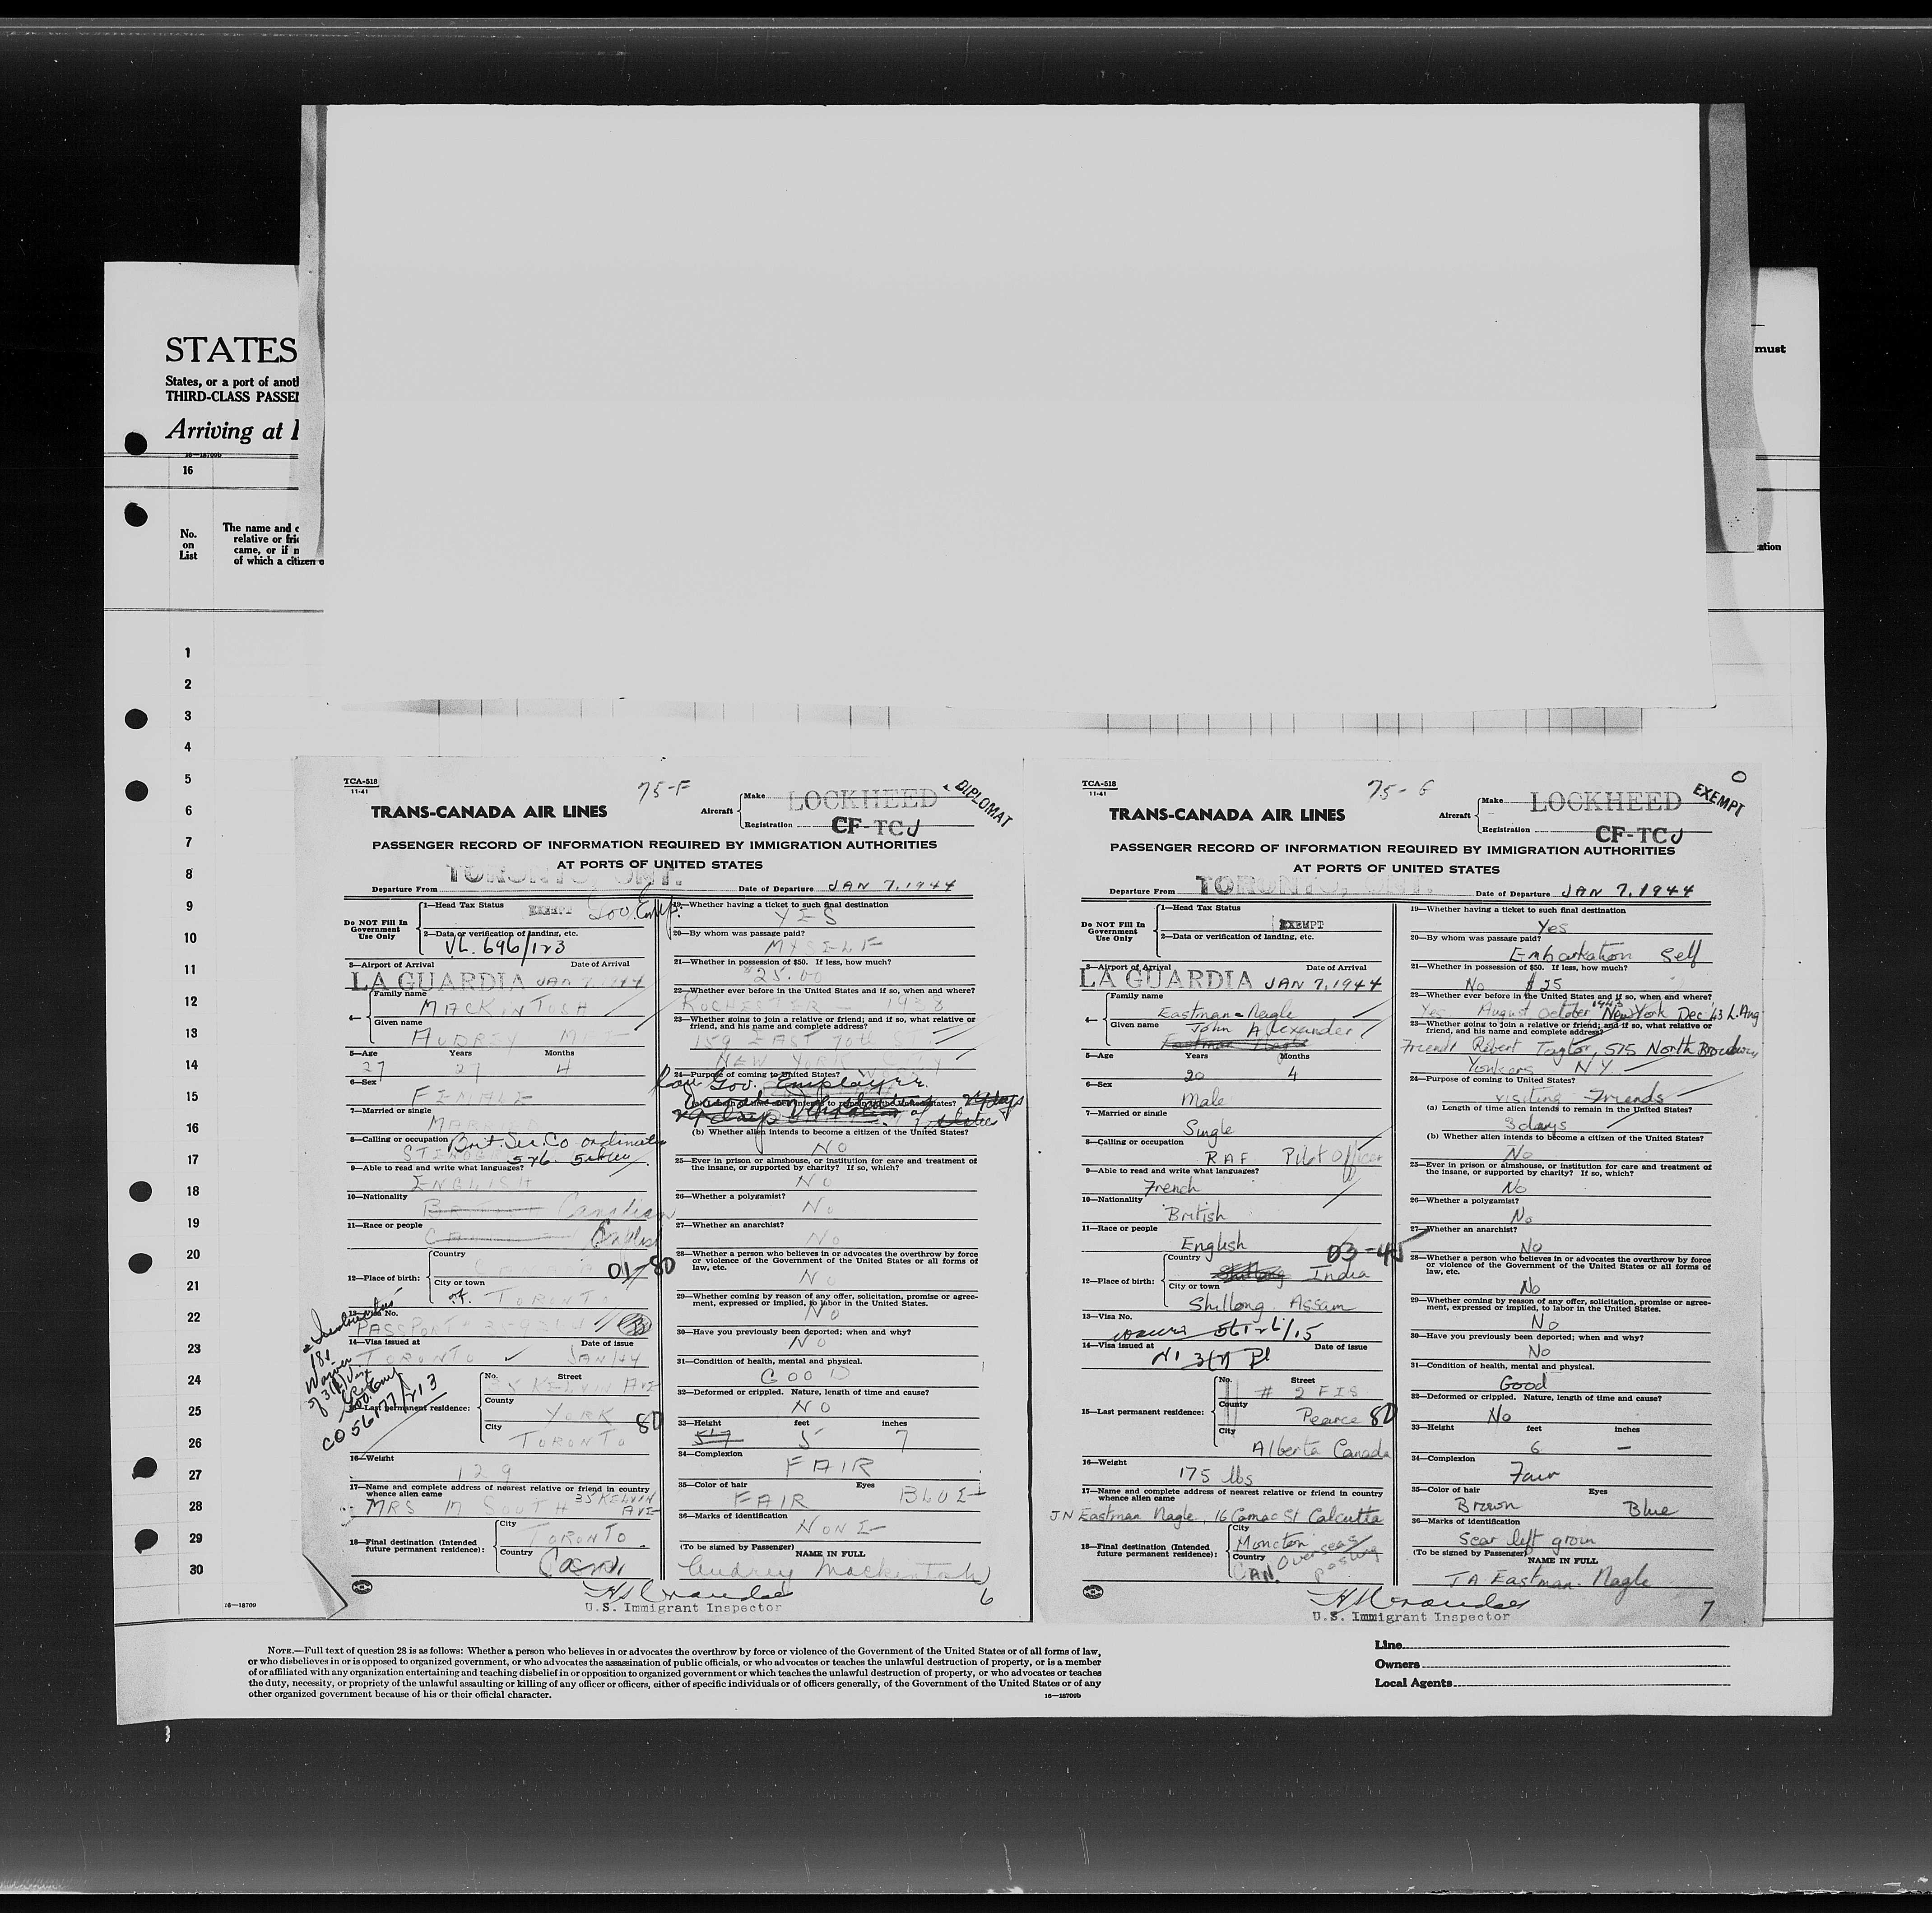 STATES
States, or a port of anoth
THIRD-CLASS PASSE
Arriving at
16—18709b
16
No.
on
List
The name and c
relative or frie
came, or if n
of which a citizen o
must
ation
1
2
3
4
5
6
7
8
9
10
11
12
13
14
15
16
17
18
19
20
21
22
23
24
25
26
27
28
29
30
16—18709
TCA-518
11-41
75-F
TRANS-CANADA AIR LINES
Aircraft
Make LOCKHEED
Registration CF-TCJ
DIPLOMAT
PASSENGER RECORD OF INFORMATION REQUIRED BY IMMIGRATION AUTHORITIES
AT PORTS OF UNITED STATES
Departure From TORONTO, ONT. Date of Departure JAN 7, 1944
Do NOT Fill In
Government
Use Only
1—Head Tax Status EXEMPT Gov. Emp.
2—Data or verification of landing, etc.
VL. 696/123
3—Airport of Arrival Date of Arrival
LA GUARDIA JAN 7, 1944
4—
Family name
MACKINTOSH
Given name
AUDREY
5—Age Years Months
27 27 4
6—Sex
FEMALE
7—Married or single
8—Calling or occupation Brit. Sec. Co-ordinator
9—Able to read and write what languages?
ENGLISH
10—Nationality
Canadian
11—Race or people
English
12—Place of birth:
Country
01-80
City or town
TORONTO
13—Visa No.
PASSPORT
14—Visa issued at Date of issue
TORONTO JAN/44
Waiver
CO 56177/213
15—Last permanent residence:
No. Street
35 KELVIN AVE
County
YORK 80
City
TORONTO
16—Weight
129
17—Name and complete address of nearest relative or friend in country
whence alien came
MRS M SOUTH 35 KELVIN AVE
18—Final destination (Intended
future permanent residence):
City
TORONTO
Country
19—Whether having a ticket to such final destination
YES
20—By whom was passage paid?
MYSELF
21—Whether in possession of $50. If less, how much?
$25.00
22—Whether ever before in the United States and if so, when and where?
ROCHESTER - 1938
23—Whether going to join a relative or friend; and if so, what relative or
friend, and his name and complete address?
159 EAST 70th ST
NEW YORK CITY
24—Purpose of coming to United States?
Gov. Employee
(a) Length of time alien intends to remain in the United States?
(b) Whether alien intends to become a citizen of the United States?
NO
25—Ever in prison or almshouse, or institution for care and treatment of
the insane, or supported by charity? If so, which?
NO
26—Whether a polygamist?
NO
27—Whether an anarchist?
NO
28—Whether a person who believes in or advocates the overthrow by force
or violence of the Government of the United States or all forms of
law, etc.
NO
29—Whether coming by reason of any offer, solicitation, promise or agree-
ment, expressed or implied, to labor in the United States.
NO
30—Have you previously been deported; when and why?
NO
31—Condition of health, mental and physical.
GOOD
32—Deformed or crippled. Nature, length of time and cause?
NO
33—Height feet inches
5'7 5 7
34—Complexion
FAIR
35—Color of hair Eyes
FAIR BLUE
36—Marks of identification
NONE
(To be signed by Passenger)
NAME IN FULL
Audrey Mackintosh
U.S. Immigrant Inspector
6
TCA-518
11-41
75-G
TRANS-CANADA AIR LINES
Aircraft
Make LOCKHEED
Registration CF-TCJ
EXEMPT
O
PASSENGER RECORD OF INFORMATION REQUIRED BY IMMIGRATION AUTHORITIES
AT PORTS OF UNITED STATES
Departure From TORONTO, ONT. Date of Departure JAN 7, 1944
Do NOT Fill In
Government
Use Only
1—Head Tax Status EXEMPT
2—Data or verification of landing, etc.
3—Airport of Arrival Date of Arrival
LA GUARDIA JAN 7, 1944
4—
Family name
Eastman-Nagle
Given name
John Alexander
Eastman Nagle
5—Age Years Months
20 4
6—Sex
Male
7—Married or single
Single
8—Calling or occupation
RAF Pilot Officer
9—Able to read and write what languages?
French
10—Nationality
British
11—Race or people
English 03-45
12—Place of birth:
Country
Shillong India
City or town
Shillong, Assam
13—Visa No.
14—Visa issued at Date of issue
15—Last permanent residence:
No. Street
# 2 FIS
County
Pearce 80
City
Alberta Canada
16—Weight
175 lbs
17—Name and complete address of nearest relative or friend in country
whence alien came
JN Eastman Nagle, 16 Camac St Calcutta
18—Final destination (Intended
future permanent residence):
City
Moncton
Country
CAN. Overseas posting
19—Whether having a ticket to such final destination
Yes
20—By whom was passage paid?
Embarkation Self
21—Whether in possession of $50. If less, how much?
No $25
22—Whether ever before in the United States and if so, when and where?
Yes August October 1943 New York Dec '43 L. Ang
23—Whether going to join a relative or friend; and if so, what relative or
friend, and his name and complete address?
Friend Robert Taylor, 575 North Broadway
Yonkers N.Y.
24—Purpose of coming to United States?
visiting Friends
(a) Length of time alien intends to remain in the United States?
3 days
(b) Whether alien intends to become a citizen of the United States?
No
25—Ever in prison or almshouse, or institution for care and treatment of
the insane, or supported by charity? If so, which?
No
26—Whether a polygamist?
No
27—Whether an anarchist?
No
28—Whether a person who believes in or advocates the overthrow by force
or violence of the Government of the United States or all forms of
law, etc.
No
29—Whether coming by reason of any offer, solicitation, promise or agree-
ment, expressed or implied, to labor in the United States.
No
30—Have you previously been deported; when and why?
No
31—Condition of health, mental and physical.
Good
32—Deformed or crippled. Nature, length of time and cause?
No
33—Height feet inches
6 —
34—Complexion
Fair
35—Color of hair Eyes
Brown Blue
36—Marks of identification
Scar left groin
(To be signed by Passenger)
NAME IN FULL
JA Eastman-Nagle
U.S. Immigrant Inspector
7
NOTE.—Full text of question 28 is as follows: Whether a person who believes in or advocates the overthrow by force or violence of the Government of the United States or of all forms of law,
or who disbelieves in or is opposed to organized government, or who advocates the assassination of public officials, or who advocates or teaches the unlawful destruction of property, or is a member
of or affiliated with any organization entertaining and teaching disbelief in or opposition to organized government or which teaches the unlawful destruction of property, or who advocates or teaches
the duty, necessity, or propriety of the unlawful assaulting or killing of any officer or officers, either of specific individuals or of officers generally, of the Government of the United States or of any
other organized government because of his or their official character.
16—18709b
Line
Owners
Local Agents